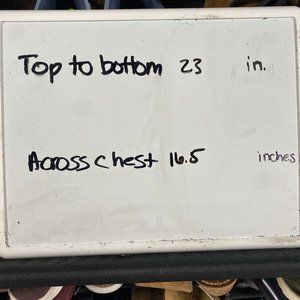 Top to bottom 23 in.
Across chest 16.5 inches